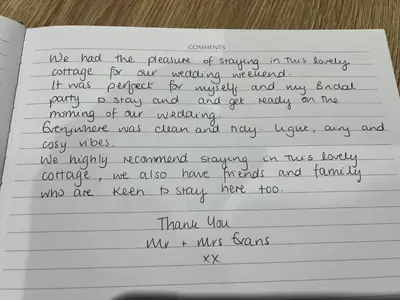 COMMENTS
We had the pleasure of staying in this lovely
cottage for our wedding weekend.
It was perfect for myself and my Bridal
party to stay and and get ready on the
morning of our wedding.
Everywhere was clean and tidy. Light, airy and
cosy vibes.
We highly recommend staying in this lovely
cottage, we also have friends and family
who are keen to stay here too.
Thank You
Mr + Mrs Evans
xx